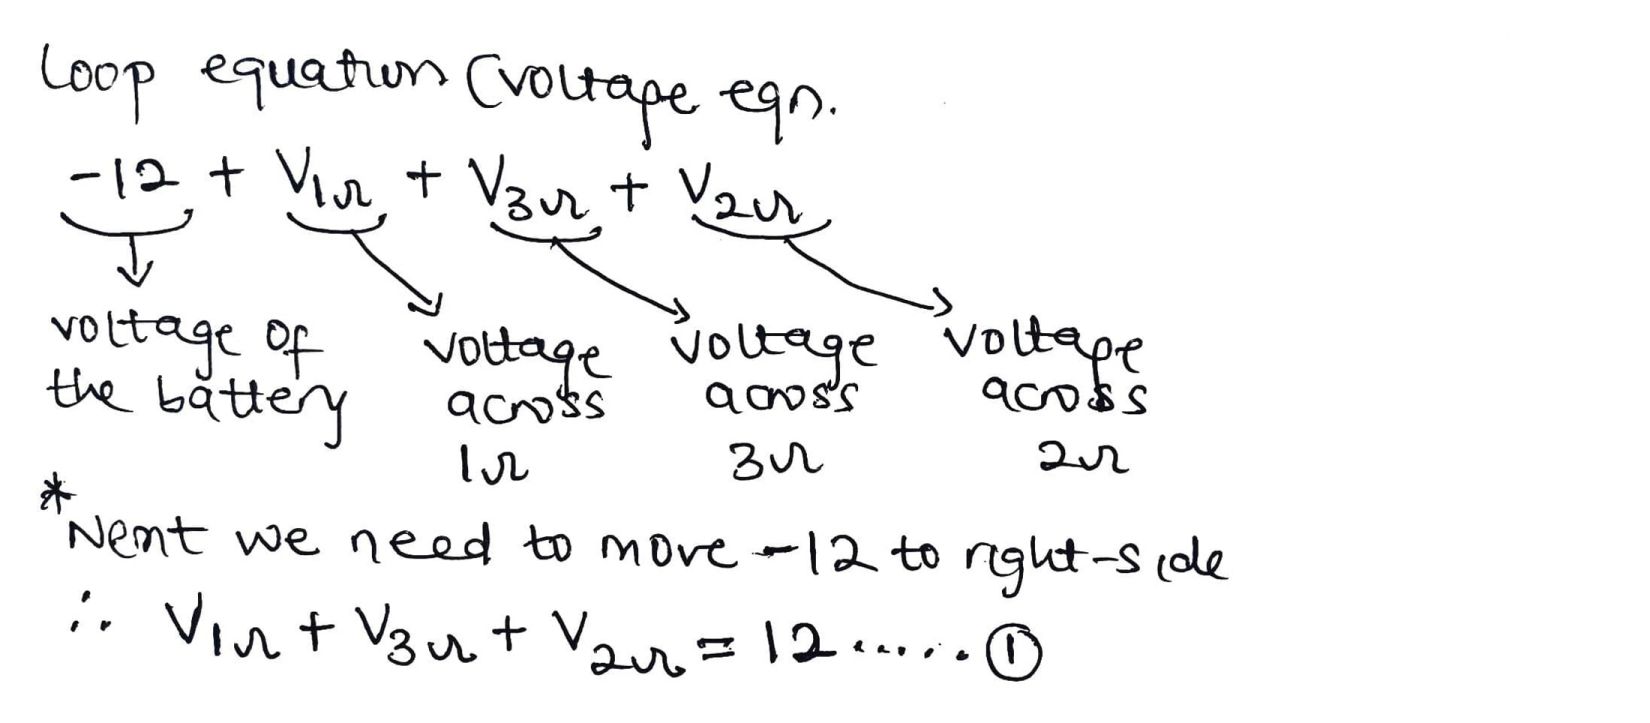 Loop equation (voltage eqn.
-12 + V1Ω + V3Ω + V2Ω
voltage of the battery
voltage across 1Ω
voltage across 3Ω
voltage across 2Ω
* Next we need to move -12 to right-side
∴ V1Ω + V3Ω + V2Ω = 12 ...... ①